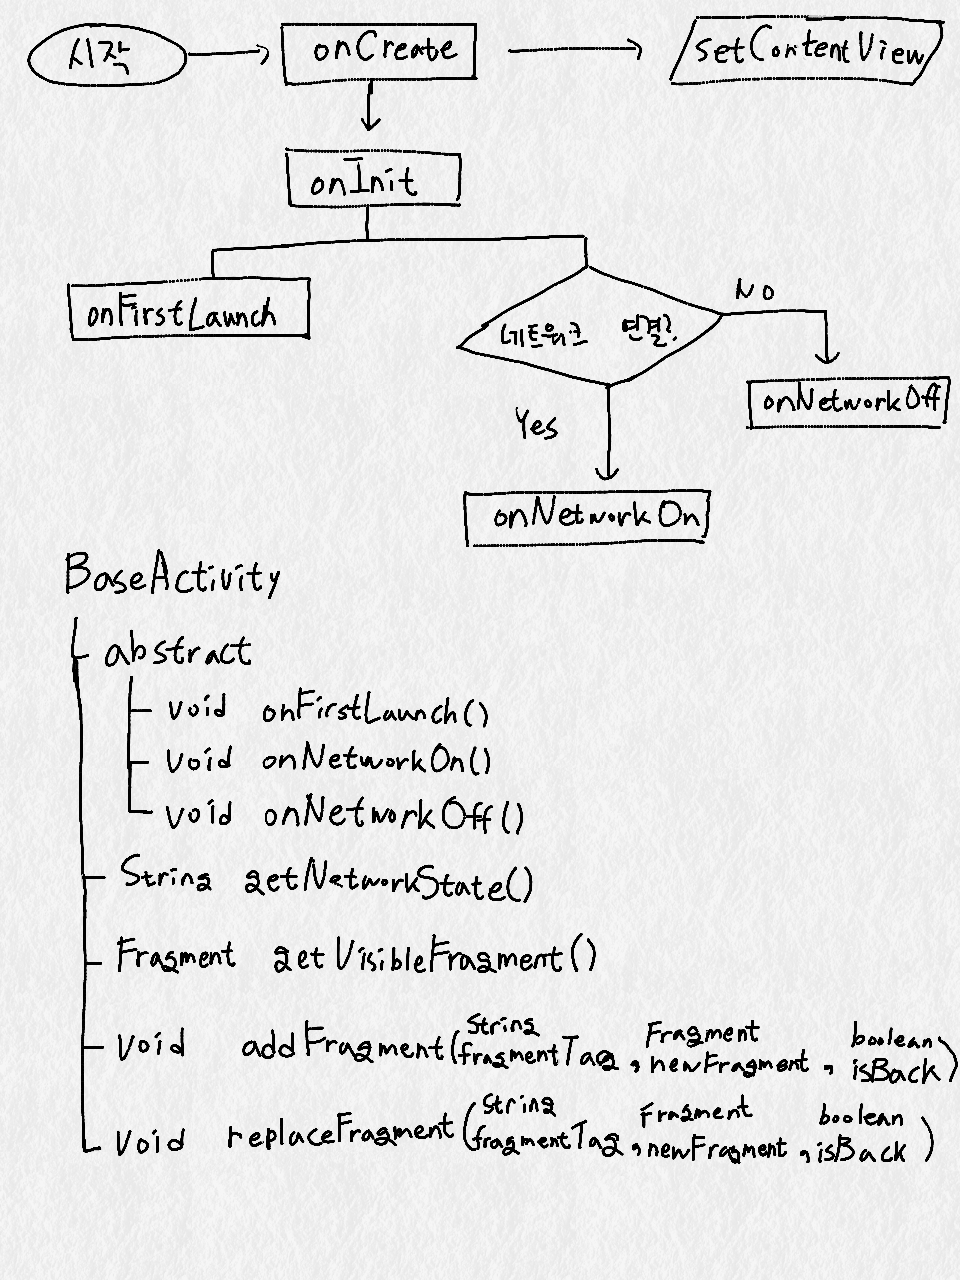 시작
onCreate
setContentView
onInit
onFirstLaunch
네트워크 연결?
No
onNetworkOff
Yes
onNetworkOn
BaseActivity
abstract
void onFirstLaunch()
void onNetworkOn()
void onNetworkOff()
String getNetworkState()
Fragment getVisibleFragment()
void addFragment(String fragmentTag, Fragment newFragment, boolean isBack)
void replaceFragment(String fragmentTag, Fragment newFragment, boolean isBack)